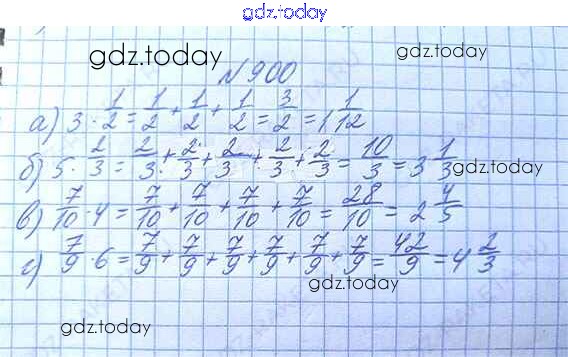 gdz.today
gdz.today
gdz.today
№900
а) 3 · 1/2 = 1/2 + 1/2 + 1/2 = 3/2 = 1 1/12
б) 5 · 2/3 = 2/3 + 2/3 + 2/3 + 2/3 + 2/3 = 10/3 = 3 1/3
в) 7/10 · 4 = 7/10 + 7/10 + 7/10 + 7/10 = 28/10 = 2 4/5
г) 7/9 · 6 = 7/9 + 7/9 + 7/9 + 7/9 + 7/9 + 7/9 = 42/9 = 4 2/3
gdz.today
gdz.today